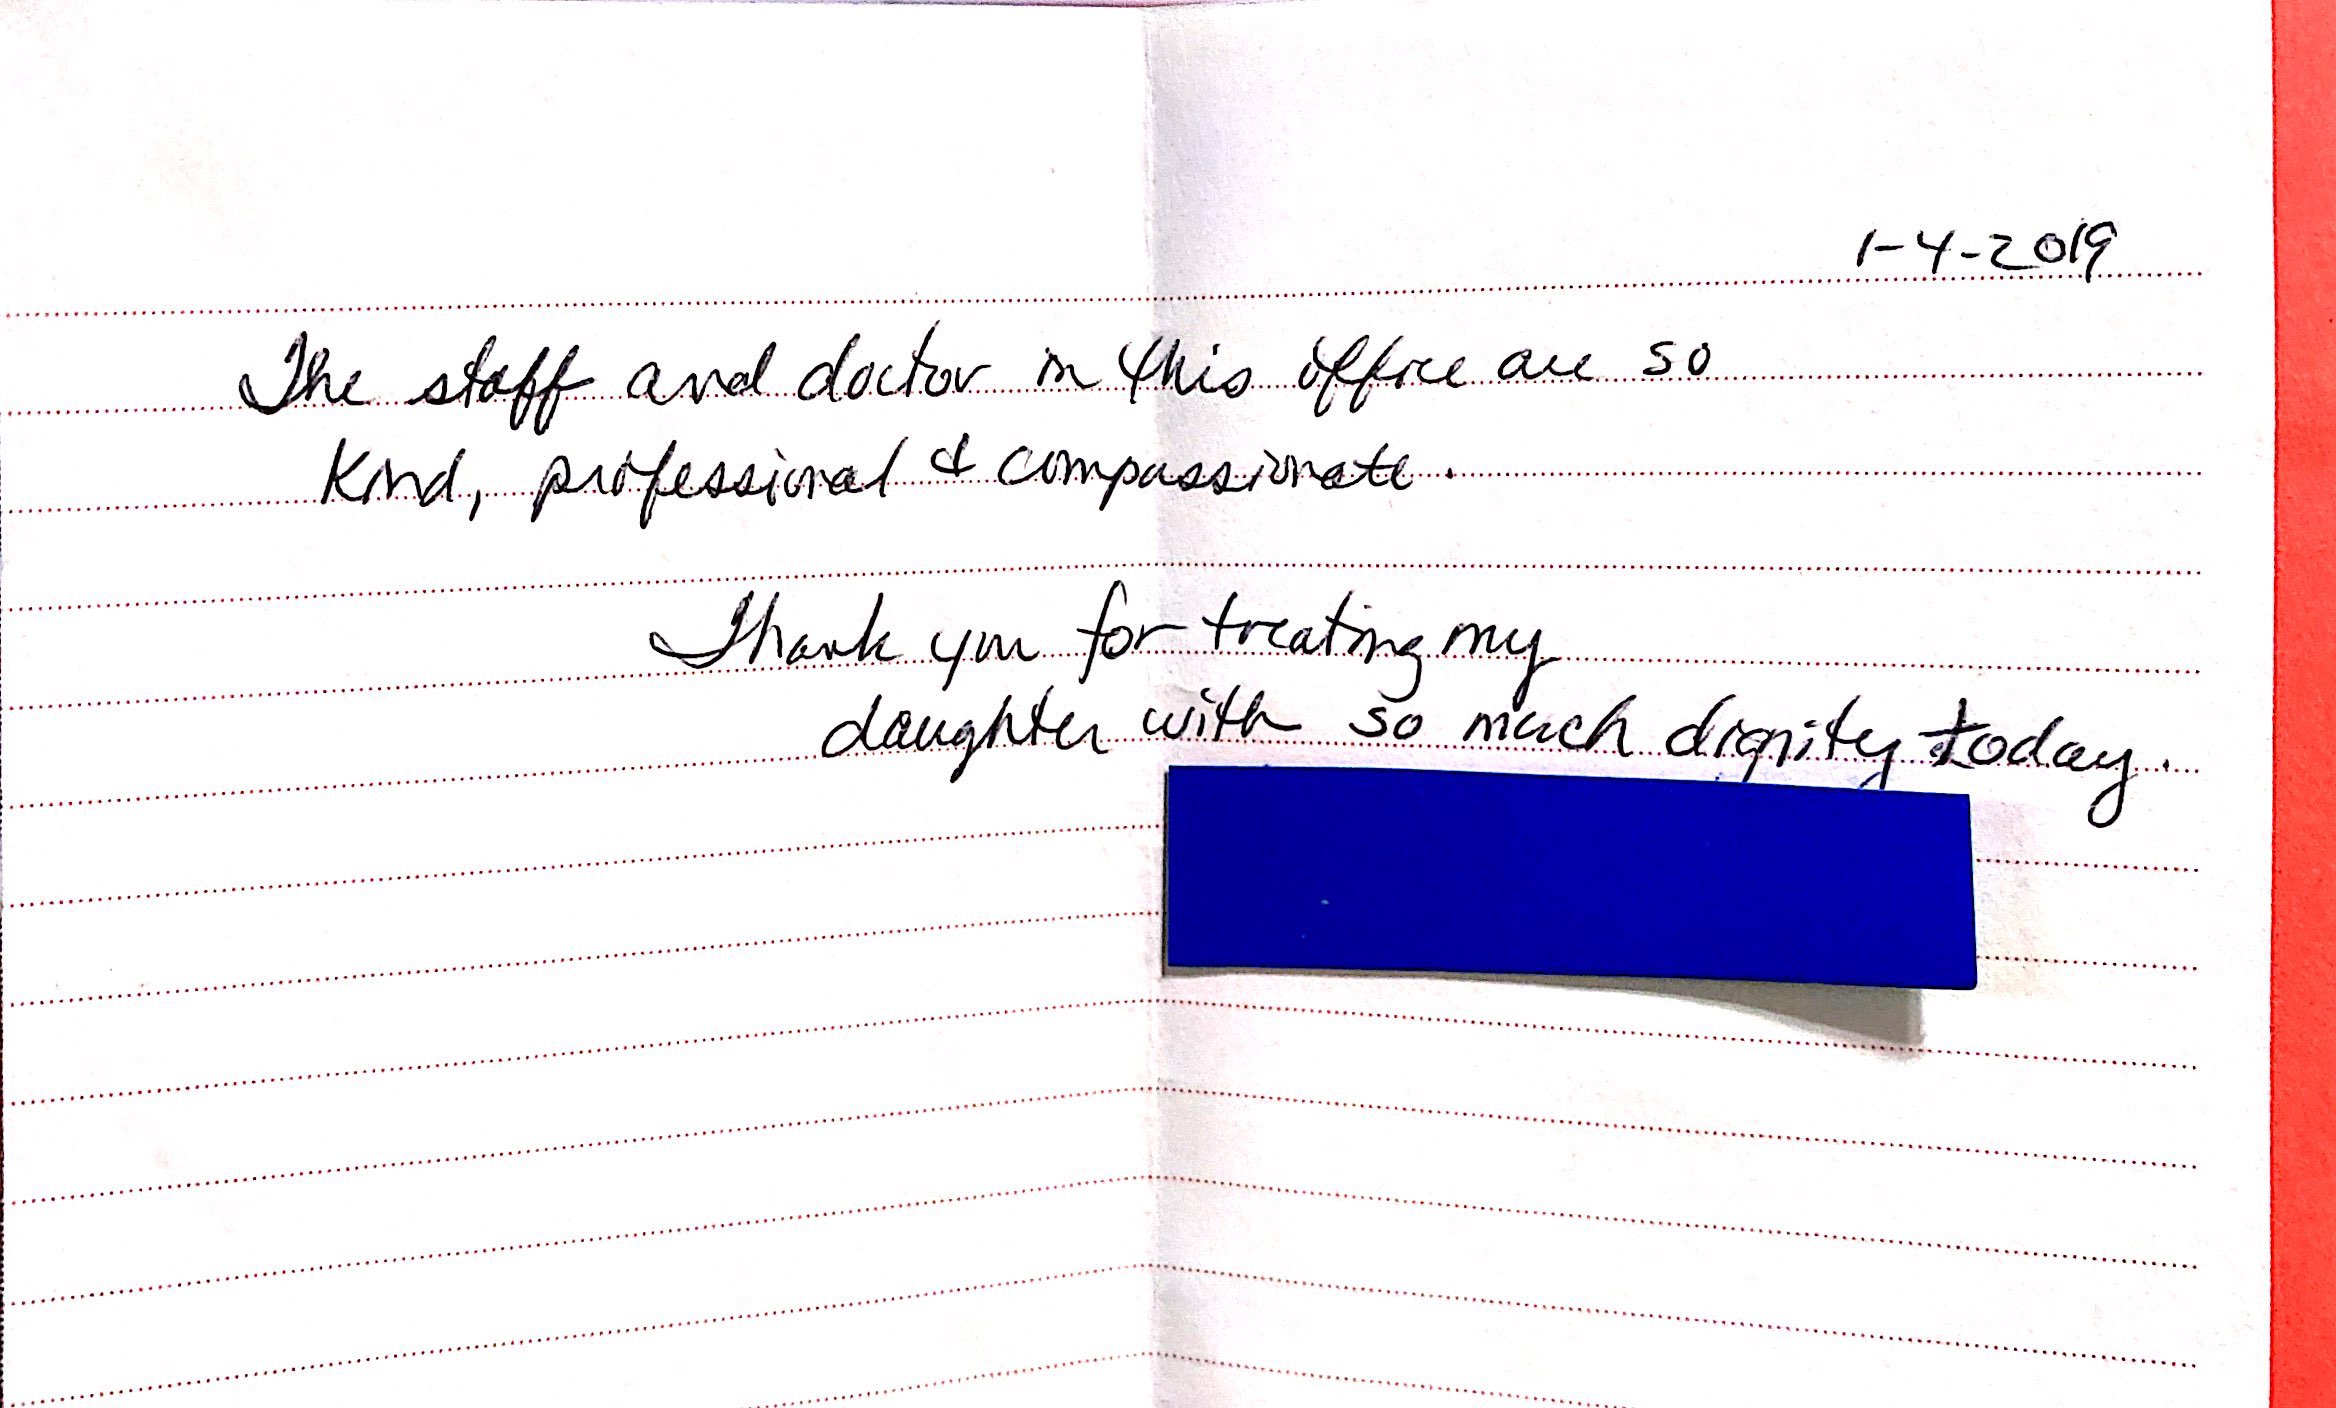 1-4-2019
The staff and doctor in this office are so
Kind, professional & compassionate.
Thank you for treating my
daughter with so much dignity today.